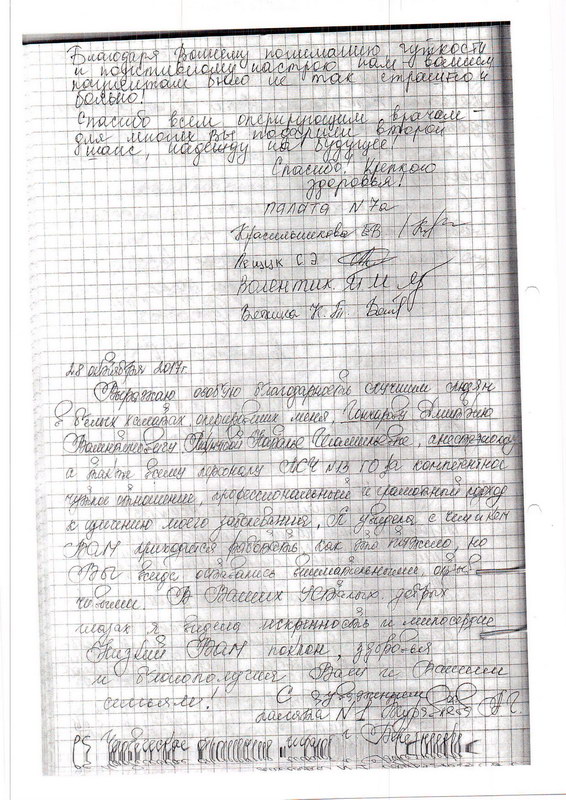 Благодаря Вашему пониманию чуткости
и позитивному настрою нам вашим
пациентам было не так страшно и
больно!
Спасибо всем оперирующим врачам -
для многих Вы подарили второй
шанс, надежду на будущее!
Спасибо! Крепкого
здоровья!
палата N 7а
Красильникова ЕВ
С Э
Волентик М М
К. Т.
28 октября 2017г.
Выражаю особую благодарность лучшим людям
в белых халатах, оперировавших меня, Гончарову Дмитрию
анестезиологу
а также всему персоналу МСЧ N13 ГО за компетентное
чуткое отношение, профессиональный и грамотный подход
к лечению моего заболевания. Я увидела с чем и кем
ВАМ приходится работать, как это тяжело, но
ВЫ всегда оставались внимательными, отзыв-
чивыми. В Ваших усталых добрых
глазах я видела искренность и милосердие
Низкий ВАМ поклон, здоровья
и благополучия Вам и Вашим
семьям! С уважением
палата N1
PS Человеческое отношение